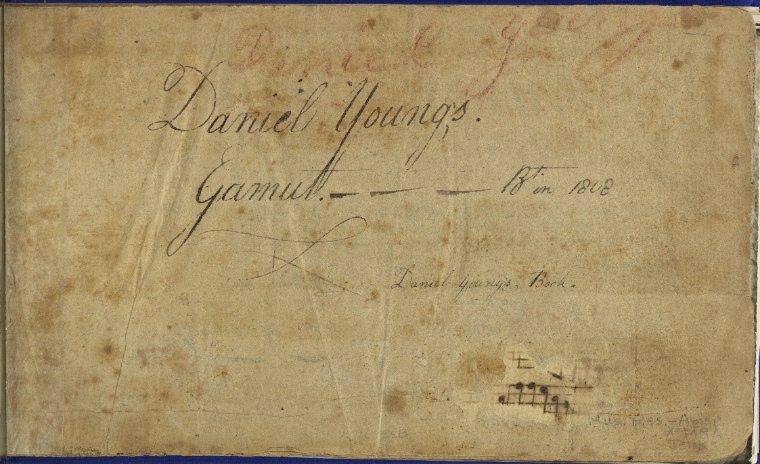 Daniel Youngs
Daniel Young,s.
Gamut. — — — Bt in 1808
Daniel Young,s. Book.
Mus. Res. *AM